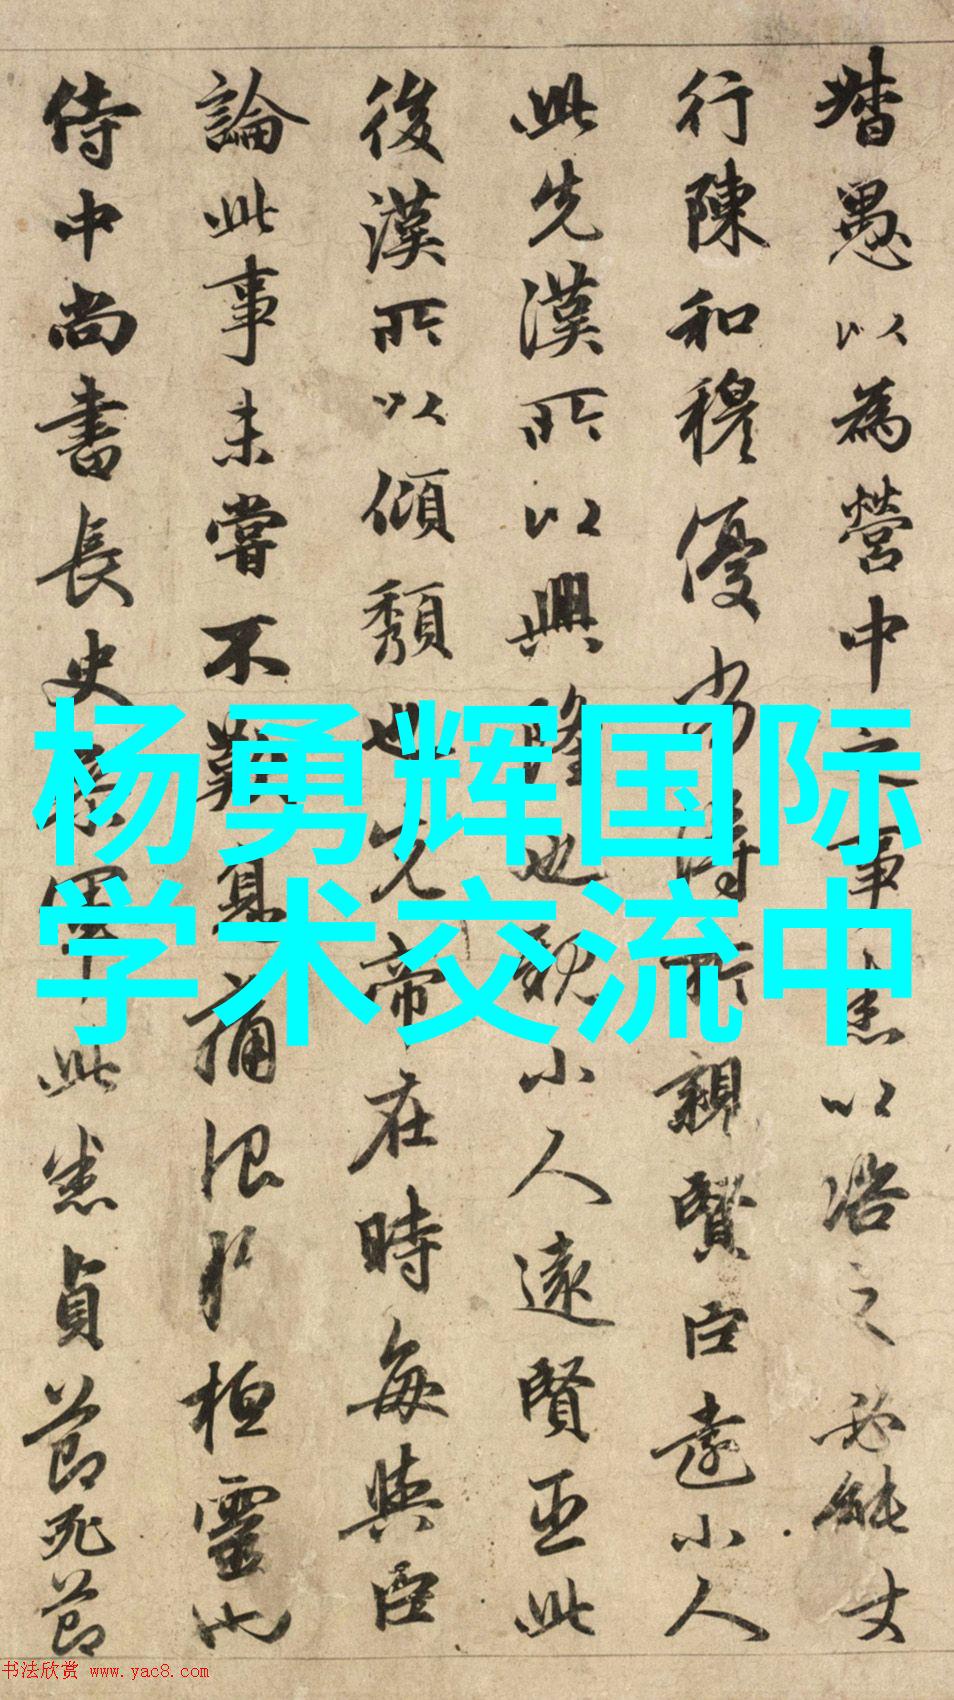 督愚以為營中之事悉以咨之必能丈
行陳和穆優劣得所親賢臣遠小人
此先漢所以興隆也親小人遠賢臣此
後漢所以傾頹也先帝在時每與臣
論此事未嘗不歎息痛恨於桓靈也
侍中尚書長史參軍此悉貞節死節
杨勇辉国际
学术交流中
书法欣赏 www.yac8.com